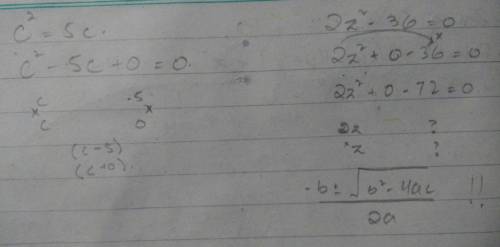 c² = 5c.
c² - 5c + 0 = 0.
c -5
x x
c 0
(c - 5)
(c + 0).
2z² - 36 = 0
x
2z² + 0 - 36 = 0
2z² + 0 - 72 = 0
2z ?
z ?
-b ± √b² - 4ac !!
2a